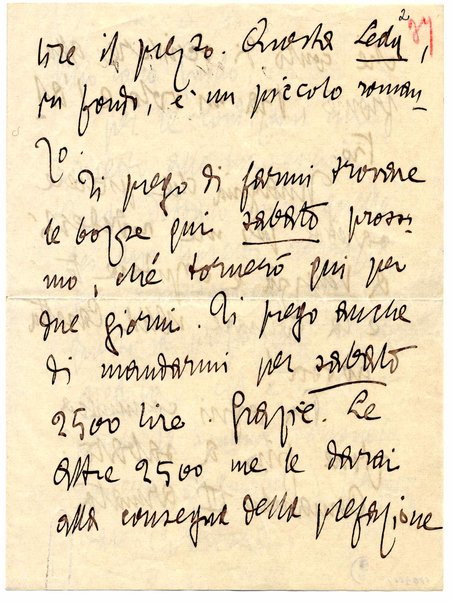 2
tire il prezzo. Questa Leda,
in fondo, è un piccolo roman-
zo.
Ti prego di farmi trovare
le bozze qui sabato prossi-
mo, ché tornerò qui per
due giorni. Ti prego anche
di mandarmi per sabato
2500 lire. Grazie. Le
altre 2500 me le darai
alla consegna della prefazione